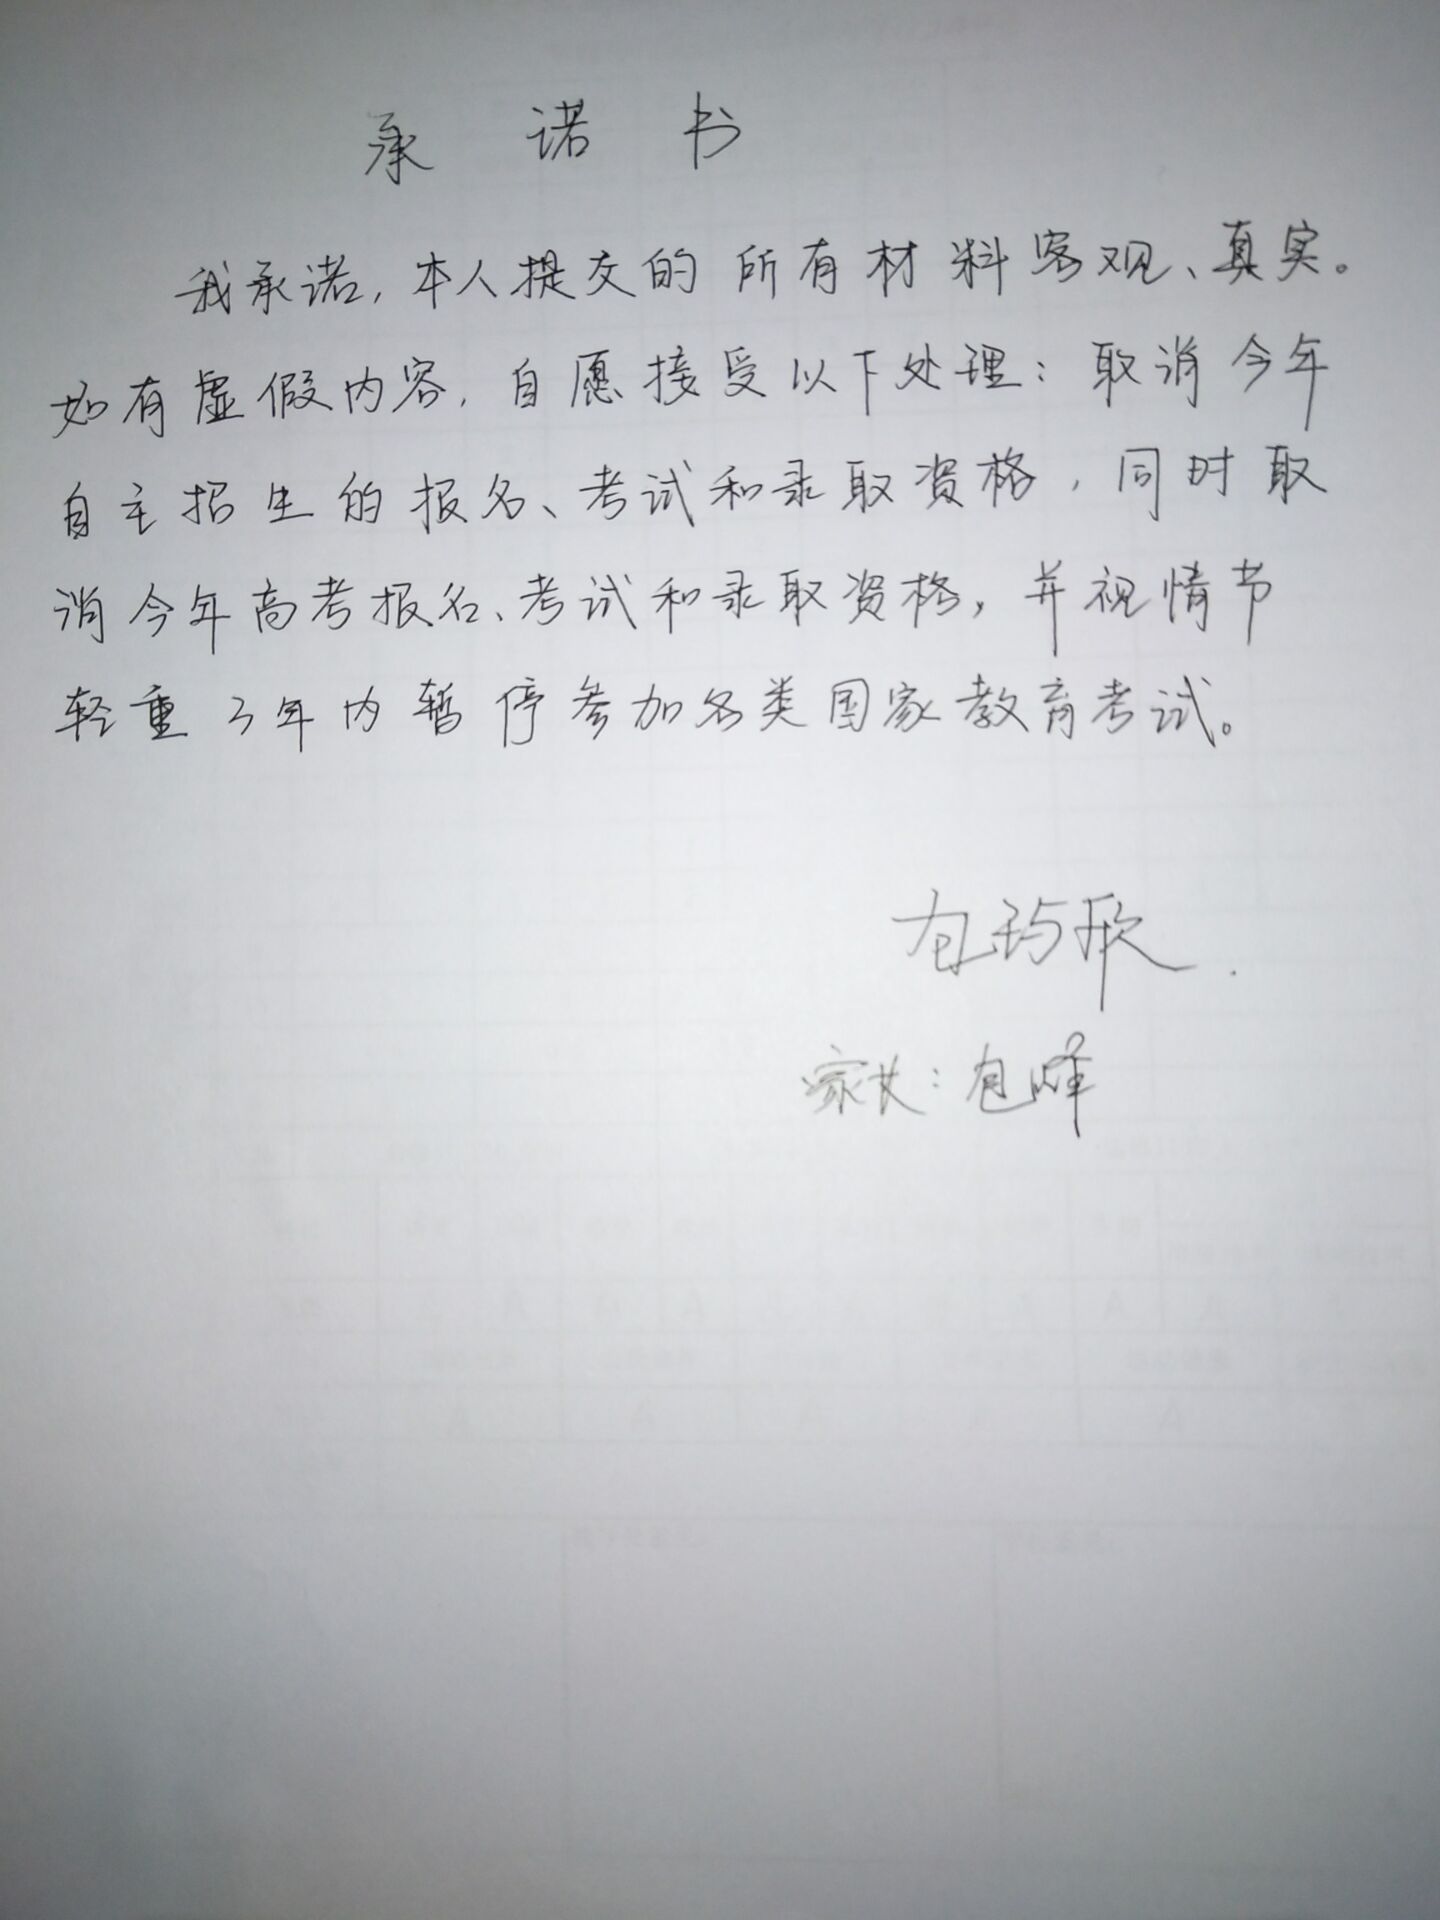 承诺书
我承诺,本人提交的所有材料客观、真实。
如有虚假内容,自愿接受以下处理:取消今年
自主招生的报名、考试和录取资格,同时取
消今年高考报名、考试和录取资格,并视情节
轻重3年内暂停参加各类国家教育考试。
包玙欣
家长:包峰